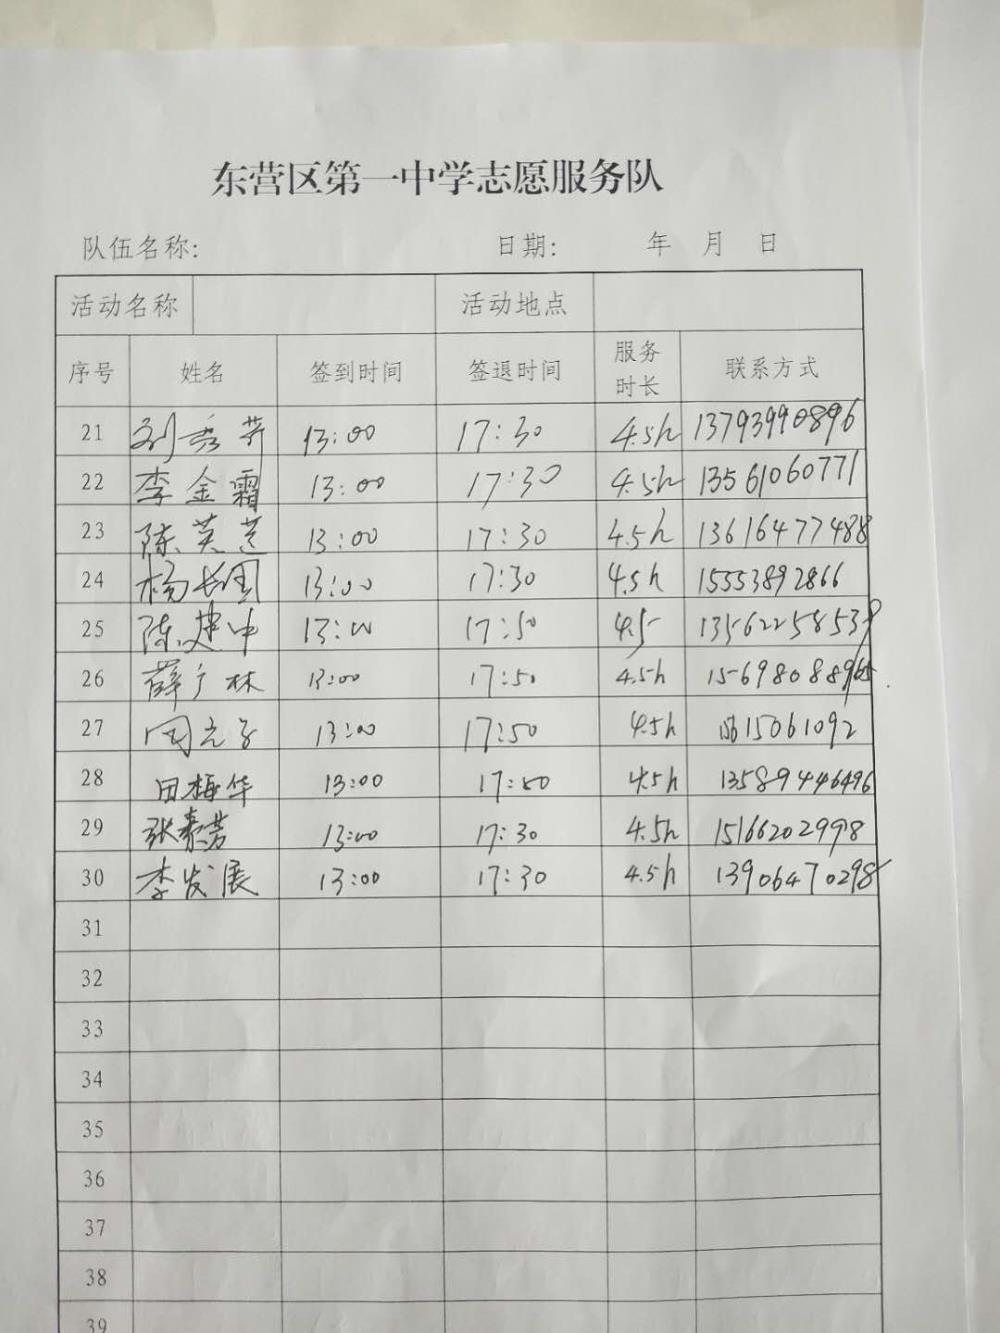 东营区第一中学志愿服务队
队伍名称: 日期: 年 月 日
活动名称 活动地点
序号 姓名 签到时间 签退时间 服务时长 联系方式
21 刘秀芳 13:00 17:30 4.5h 13793990896
22 李金霜 13:00 17:30 4.5h 13561060771
23 陈英兰 13:00 17:30 4.5h 13616477488
24 杨长国 13:00 17:30 4.5h 15553892866
25 陈建中 13:00 17:50 4.5 13562258539
26 薛广林 13:00 17:50 4.5h
27 13:00 17:50 4.5h
28 田梅华 13:00 17:50 4.5h 13589446496
29 张素芳 13:00 17:30 4.5h 15166202998
30 李发展 13:00 17:30 4.5h 13906470298
31
32
33
34
35
36
37
38
39